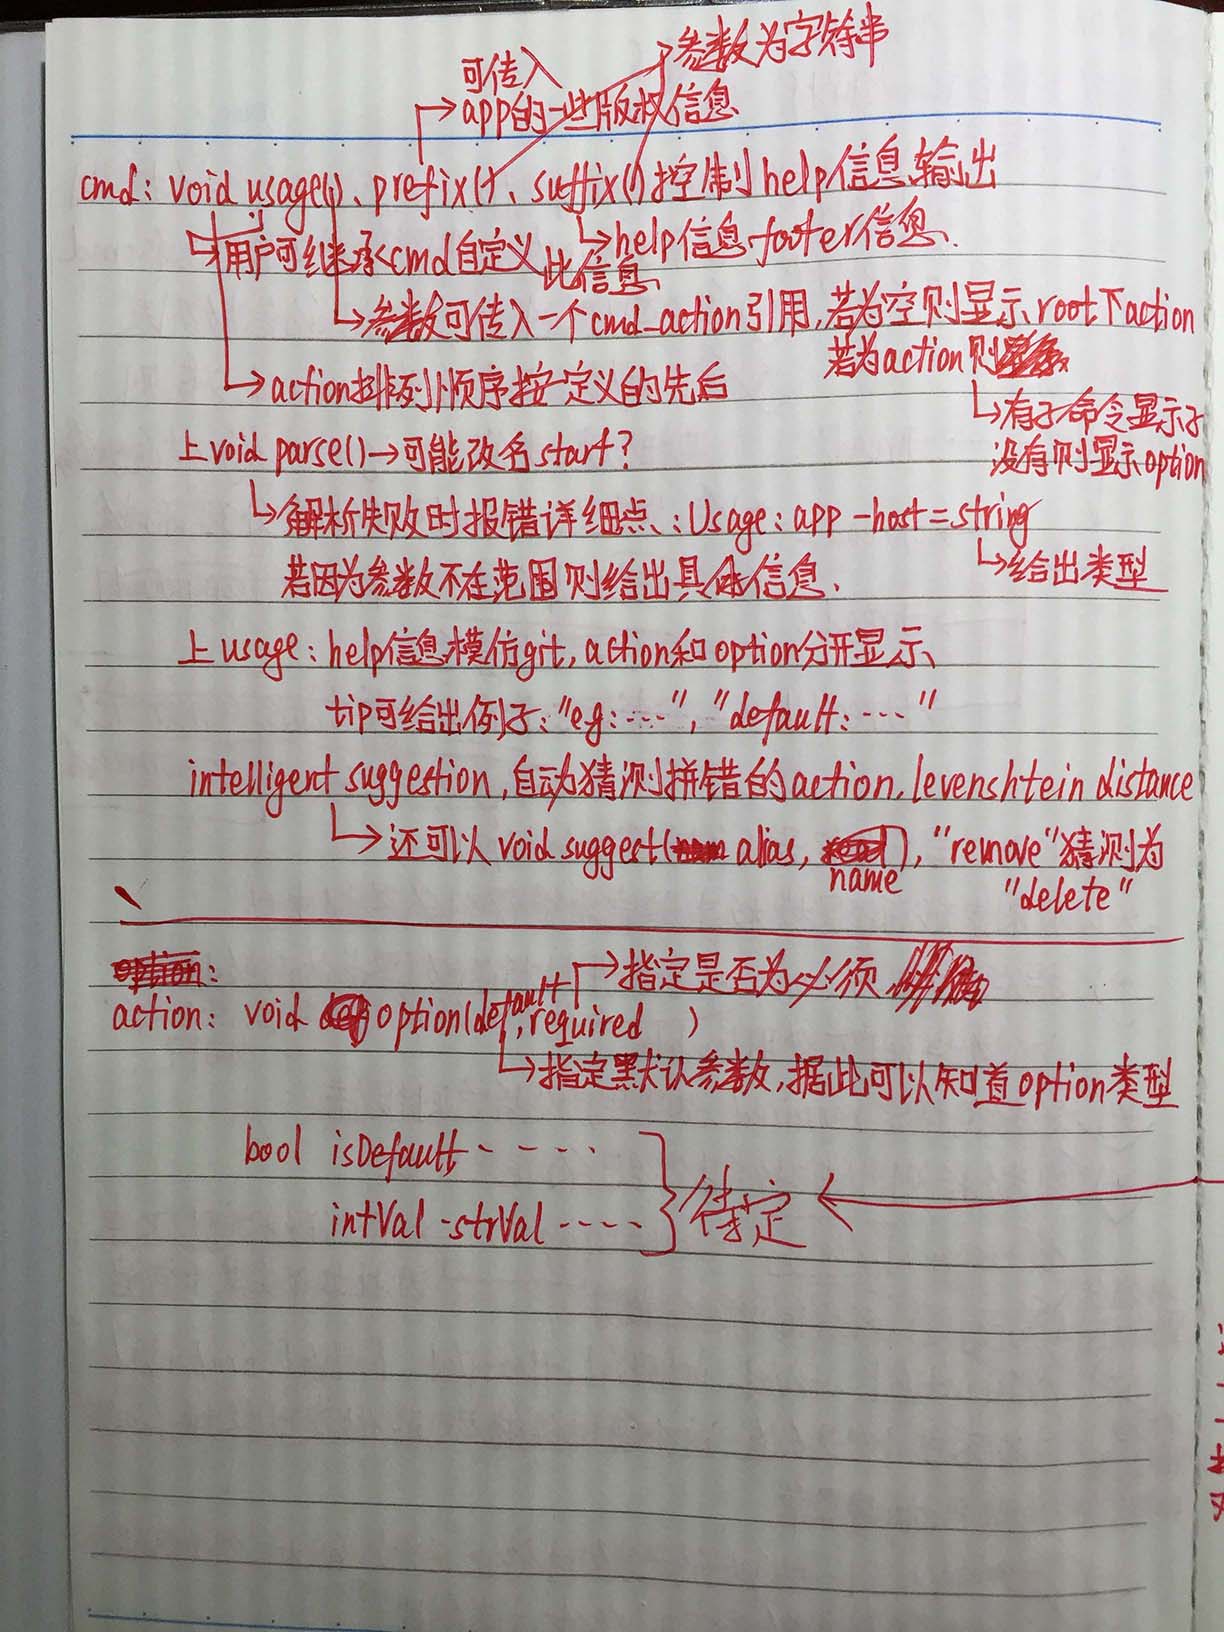 参数为字符串
可传入
app的一些版权信息
cmd: void usage()、prefix()、suffix()控制help信息输出
用户可继承cmd自定义此信息
help信息footer信息、
参数可传入一个cmd_action引用,若为空则显示root下action
若为action则
action排列顺序按定义的先后
有子命令显示子
没有则显示option
上void parse()→可能改名start?
解析失败时报错详细点、: Usage: app -host=string
给出类型
若因为参数不在范围则给出具体信息、
上usage: help信息模仿git, action和option分开显示、
tip可给出例子: "eg: ...", "default: ..."
intelligent suggestion, 自动猜测拼错的action, levenshtein distance
还可以void suggest( alias, name), "remove"猜测为
"delete"
option:
指定是否为必须
action: void option(default, required )
指定默认参数, 据此可以知道option类型
bool isDefault - - - -
待定
intVal -strVal ----